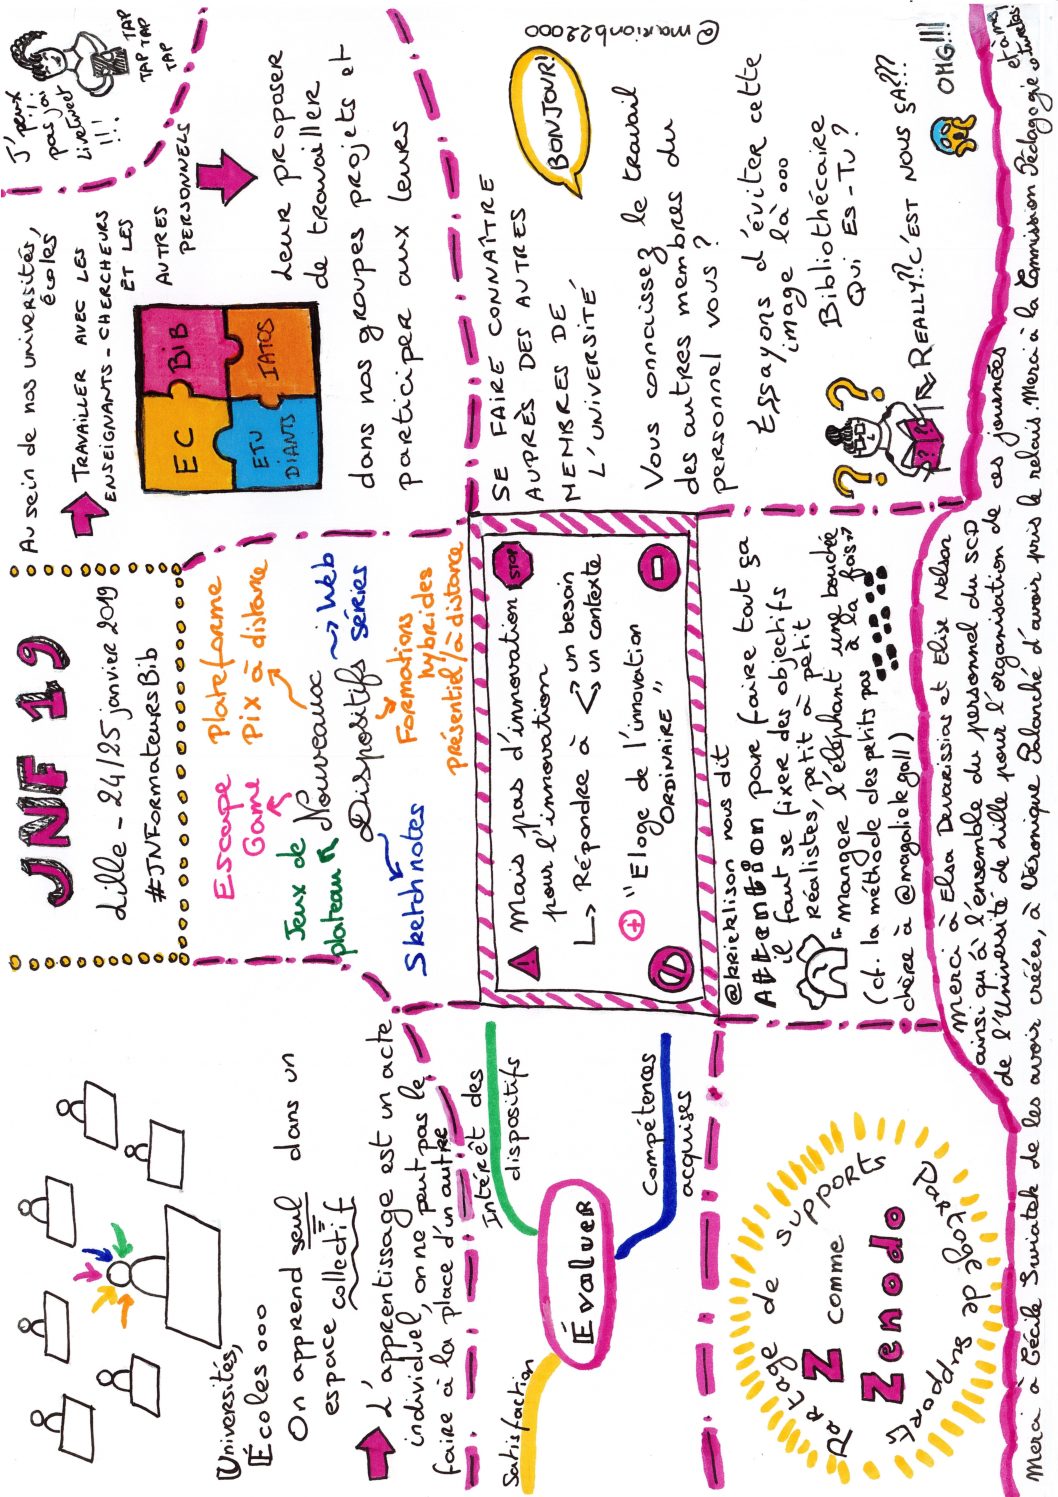 JNF 19
Lille - 24/25 janvier 2019
#JNFormateursBib
Universités,
Écoles ooo
On apprend seul dans un
espace collectif
L'apprentissage est un acte
individuel, on ne peut pas le
faire à la place d'un autre
Escape
Game
Plateforme
Pix à distance
Jeux de
plateau
Nouveaux
Dispositifs
Web
séries
Sketchnotes
Formations
hybrides
présentiel/à distance
Au sein de nos universités,
écoles
TRAVAILLER AVEC LES
ENSEIGNANTS-CHERCHEURS
ET LES
AUTRES
PERSONNELS
EC
BIB
ETU
DIANTS
IATOS
Leur proposer
de travailler
dans nos groupes projets et
participer aux leurs
J'peux
pas j'ai
Livetweet
!!!
TAP
TAP TAP
TAP
Évaluer
Satisfaction
Intérêt des
dispositifs
Compétences
acquises
Mais pas d'innovation
pour l'innovation
STOP
Répondre à
un besoin
un contexte
+ "Eloge de l'innovation
ORDINAIRE"
SE FAIRE CONNAÎTRE
AUPRÈS DES AUTRES
MEMBRES DE
L'UNIVERSITÉ
BONJOUR!
@marionb22000
Vous connaissez le travail
des autres membres du
personnel vous ?
Essayons d'éviter cette
image là ooo
Bibliothécaire
Qui Es-Tu ?
? ?
? ?
REALLY?? C'EST NOUS ÇA???
OMG!!!
@kricklison nous dit
Attention pour faire tout ça
il faut se fixer des objectifs
réalistes, petit à petit
"manger l'éléphant une bouchée
à la fois"
(cf. la méthode des petits pas
chère à @magaliekgall)
Partage de supports
Z comme
Zenodo
Partage de supports
Merci à Elsa Devarissias et Elise Nelson
ainsi qu'à l'ensemble du personnel du SCD
de l'Université de Lille pour l'organisation de ces journées
Merci à Cécile Swiatek de les avoir créées, à Véronique Palanché d'avoir pris le relais. Merci à la Commission Pédagogie
et à mes
cotwittos